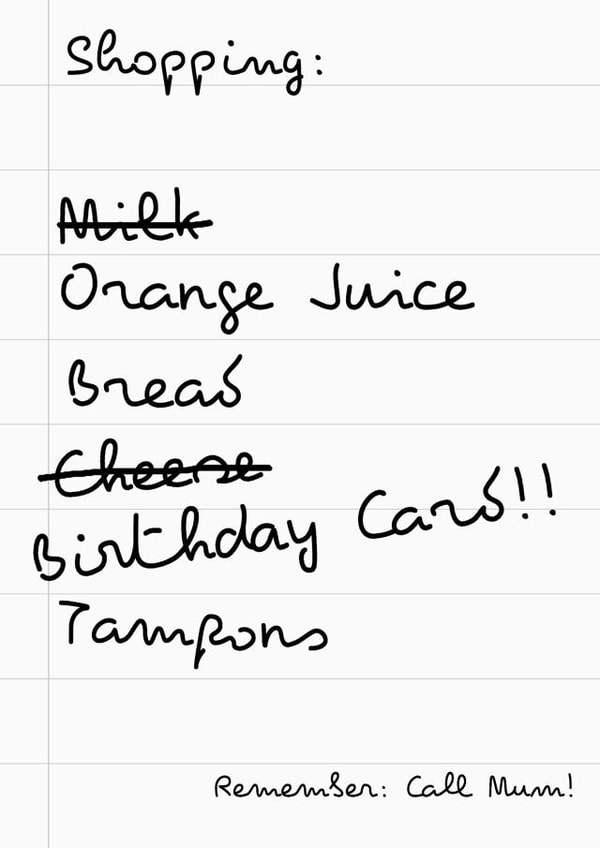 Shopping:
Milk
Orange Juice
Bread
Cheese
Birthday Card!!
Tampons
Remember: Call Mum!